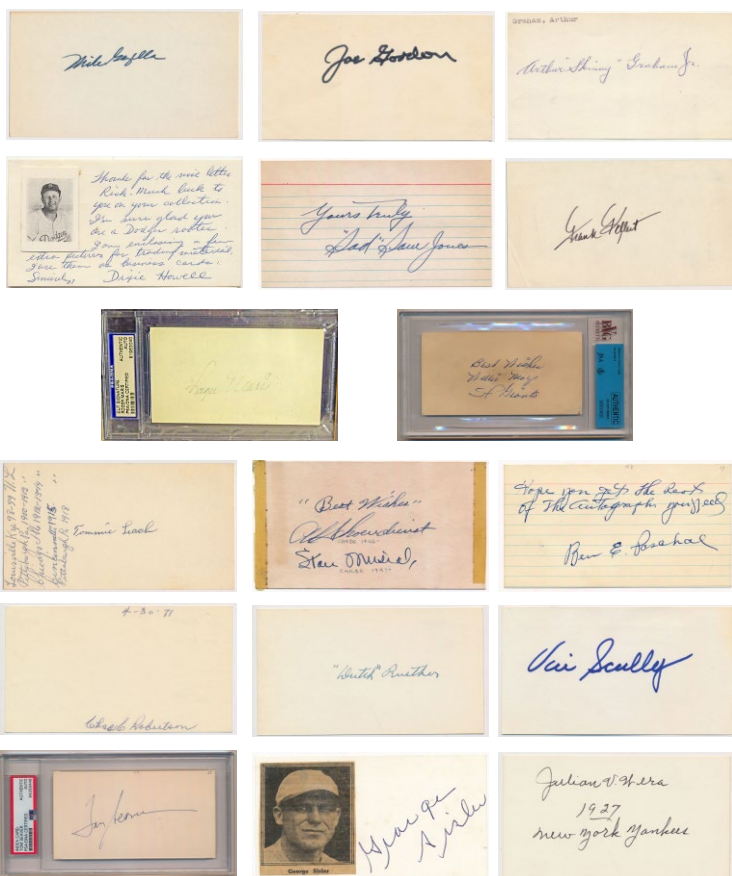 Mike Gazella
Joe Gordon
Graham, Arthur
Arthur "Shimmy" Graham Jr.
Thanks for the nice letter
Rick. Much luck to
you on your collection.
I'm sure glad you
are a Dodger rooter.
I am enclosing a few
extra pictures for trading material.
I use them as business cards.
Sincerely, Dixie Howell
Dodgers
Yours Truly
"Sad" Sam Jones
Roger Maris
AUTHENTIC
Best Wishes
Willie Mays
SF Giants
AUTHENTIC
Louisville Ky 98-99 N.L.
Pittsburgh Pa 1900-1912 "
Chicago Ills 1912-1914 "
Cincinnati 1915 "
Pittsburgh Pa 1918
Tommie Leach
"Best Wishes"
Al Schoendienst
Stan Musial
Hope you get the rest
of the autographs you need
Ben E. Paschal
4-30-71
Chas C Robertson
"Dutch" Ruether
Vin Scully
Tom Seaver
George Sisler
George Sisler
Julian V. Wera
1927
New York Yankees